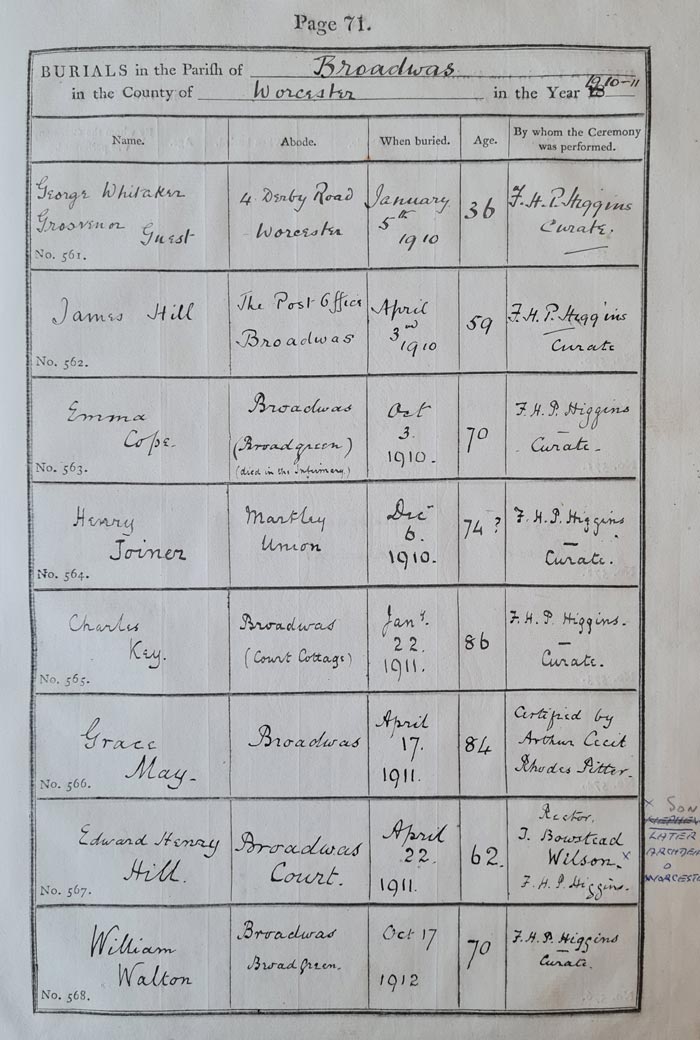 Page 71.
BURIALS in the Parish of Broadwas
in the County of Worcester in the Year 1910-11
Name. Abode. When buried. Age. By whom the Ceremony was performed.
George Whitaker
Grosvenor Guest
No. 561.
4 Derby Road
Worcester
January
5th
1910
36
F. H. P. Higgins
Curate.
James Hill
No. 562.
The Post Office
Broadwas
April
3rd
1910
59
F. H. P. Higgins
Curate
Emma
Cope.
No. 563.
Broadwas
(Broadgreen)
(died in the Infirmary.)
Oct
3.
1910.
70
F. H. P. Higgins
Curate.
Henry
Joiner
No. 564.
Martley
Union
Dec
6.
1910.
74?
F. H. P. Higgins
Curate.
Charles
Key.
No. 565.
Broadwas
(Court Cottage)
Jany.
22.
1911.
86
F. H. P. Higgins.
Curate.
Grace
May.
No. 566.
Broadwas
April
17.
1911.
84
Certified by
Arthur Cecil
Rhodes Pitter.
Edward Henry
Hill.
No. 567.
Broadwas
Court.
April
22.
1911.
62.
Rector.
J. Bowstead
Wilson. x
F. H. P. Higgins.
x SON
NEPHEW
LATER
WORCESTE
William
Walton
No. 568.
Broadwas
Broadgreen.
Oct 17
1912
70
F. H. P. Higgins
Curate.